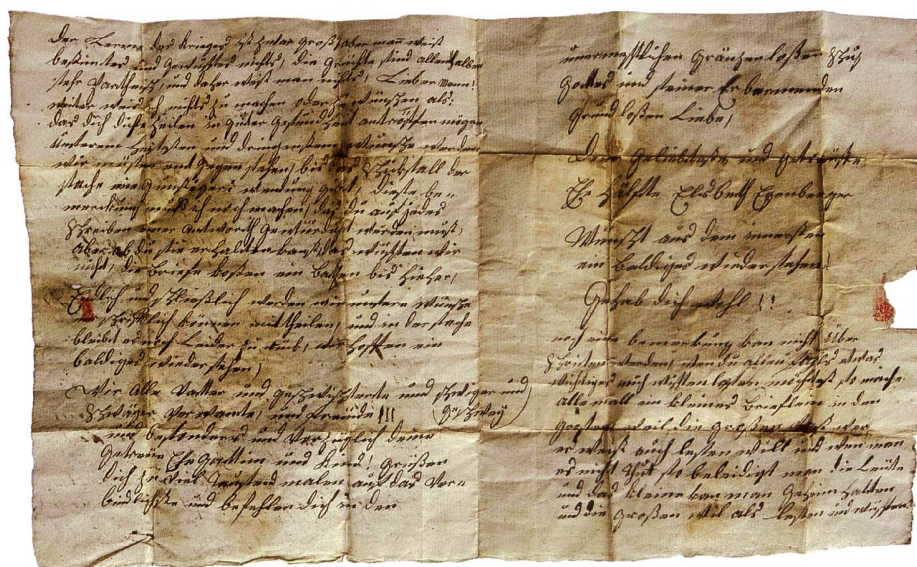 Der Lerm des Krieges ist zwar Groß, aber man weist
bestimtes und gewisses nichts, die Gerüchte sind allenthalben
sehr Partheisch, und daher weist man nichts, Lieber Mann!
weiter weis ich nichts zu machen oder zu wünschen als:
das dich diese Zeilen in guter Gesundheit antreffen mögen
Unserem heisesten und dringensten wünsche werden
wir müssen entgegen sehen, bis das Schicksall der
sache ein günstigere wendung gibt, diese be=
merckung muß ich noch machen, das du auf jedes
Schreiben einer Antworth gewürdiget werden must,
aber ob du sie erhalten kanst, das wüssen wir
nicht, die briefe kosten ein Batzen bis hieher,
Endlich und schließlich werden wir unsere wünsche
schriftlich können mittheilen, und in der sache
bleibt es noch Leider zu trüb, wir hoffen ein
baldiges wiedersehen,
Wir Alle Vatter und geschwisterte und schwiger und
Schwäger Verwante, und freunde !!!
und besonders und Vorzüglich deine
getreue Ehe Gattin und Kind, grüßen
dich zu viel Tausend malen auf das Ver=
bindlichste und befehlen dich in den
unermesslichen gränzenloßen Schuz
Gottes und seiner Erbarmenden
Grundloßen Liebe,
Deine Geliebteste und getreüste
Ehe Hälfte Elisbetha Egenberger
Wünscht aus dem innersten
ein baldiges wiedersehen,
Gehab dich wohl !!
noch eine bemerkung kan nicht über
Schriten werden, wen du allenfalls etwas
wichtiges mich wissen lasen möchtest so mache
alle mall ein kleines brieflein in den
großen weil die großen
er weist auch lesen will und wen man
es nicht thut, so beleidigt man die Leüte
und das kleine kan man geheim halten
und die großen wil als lesen und wissen